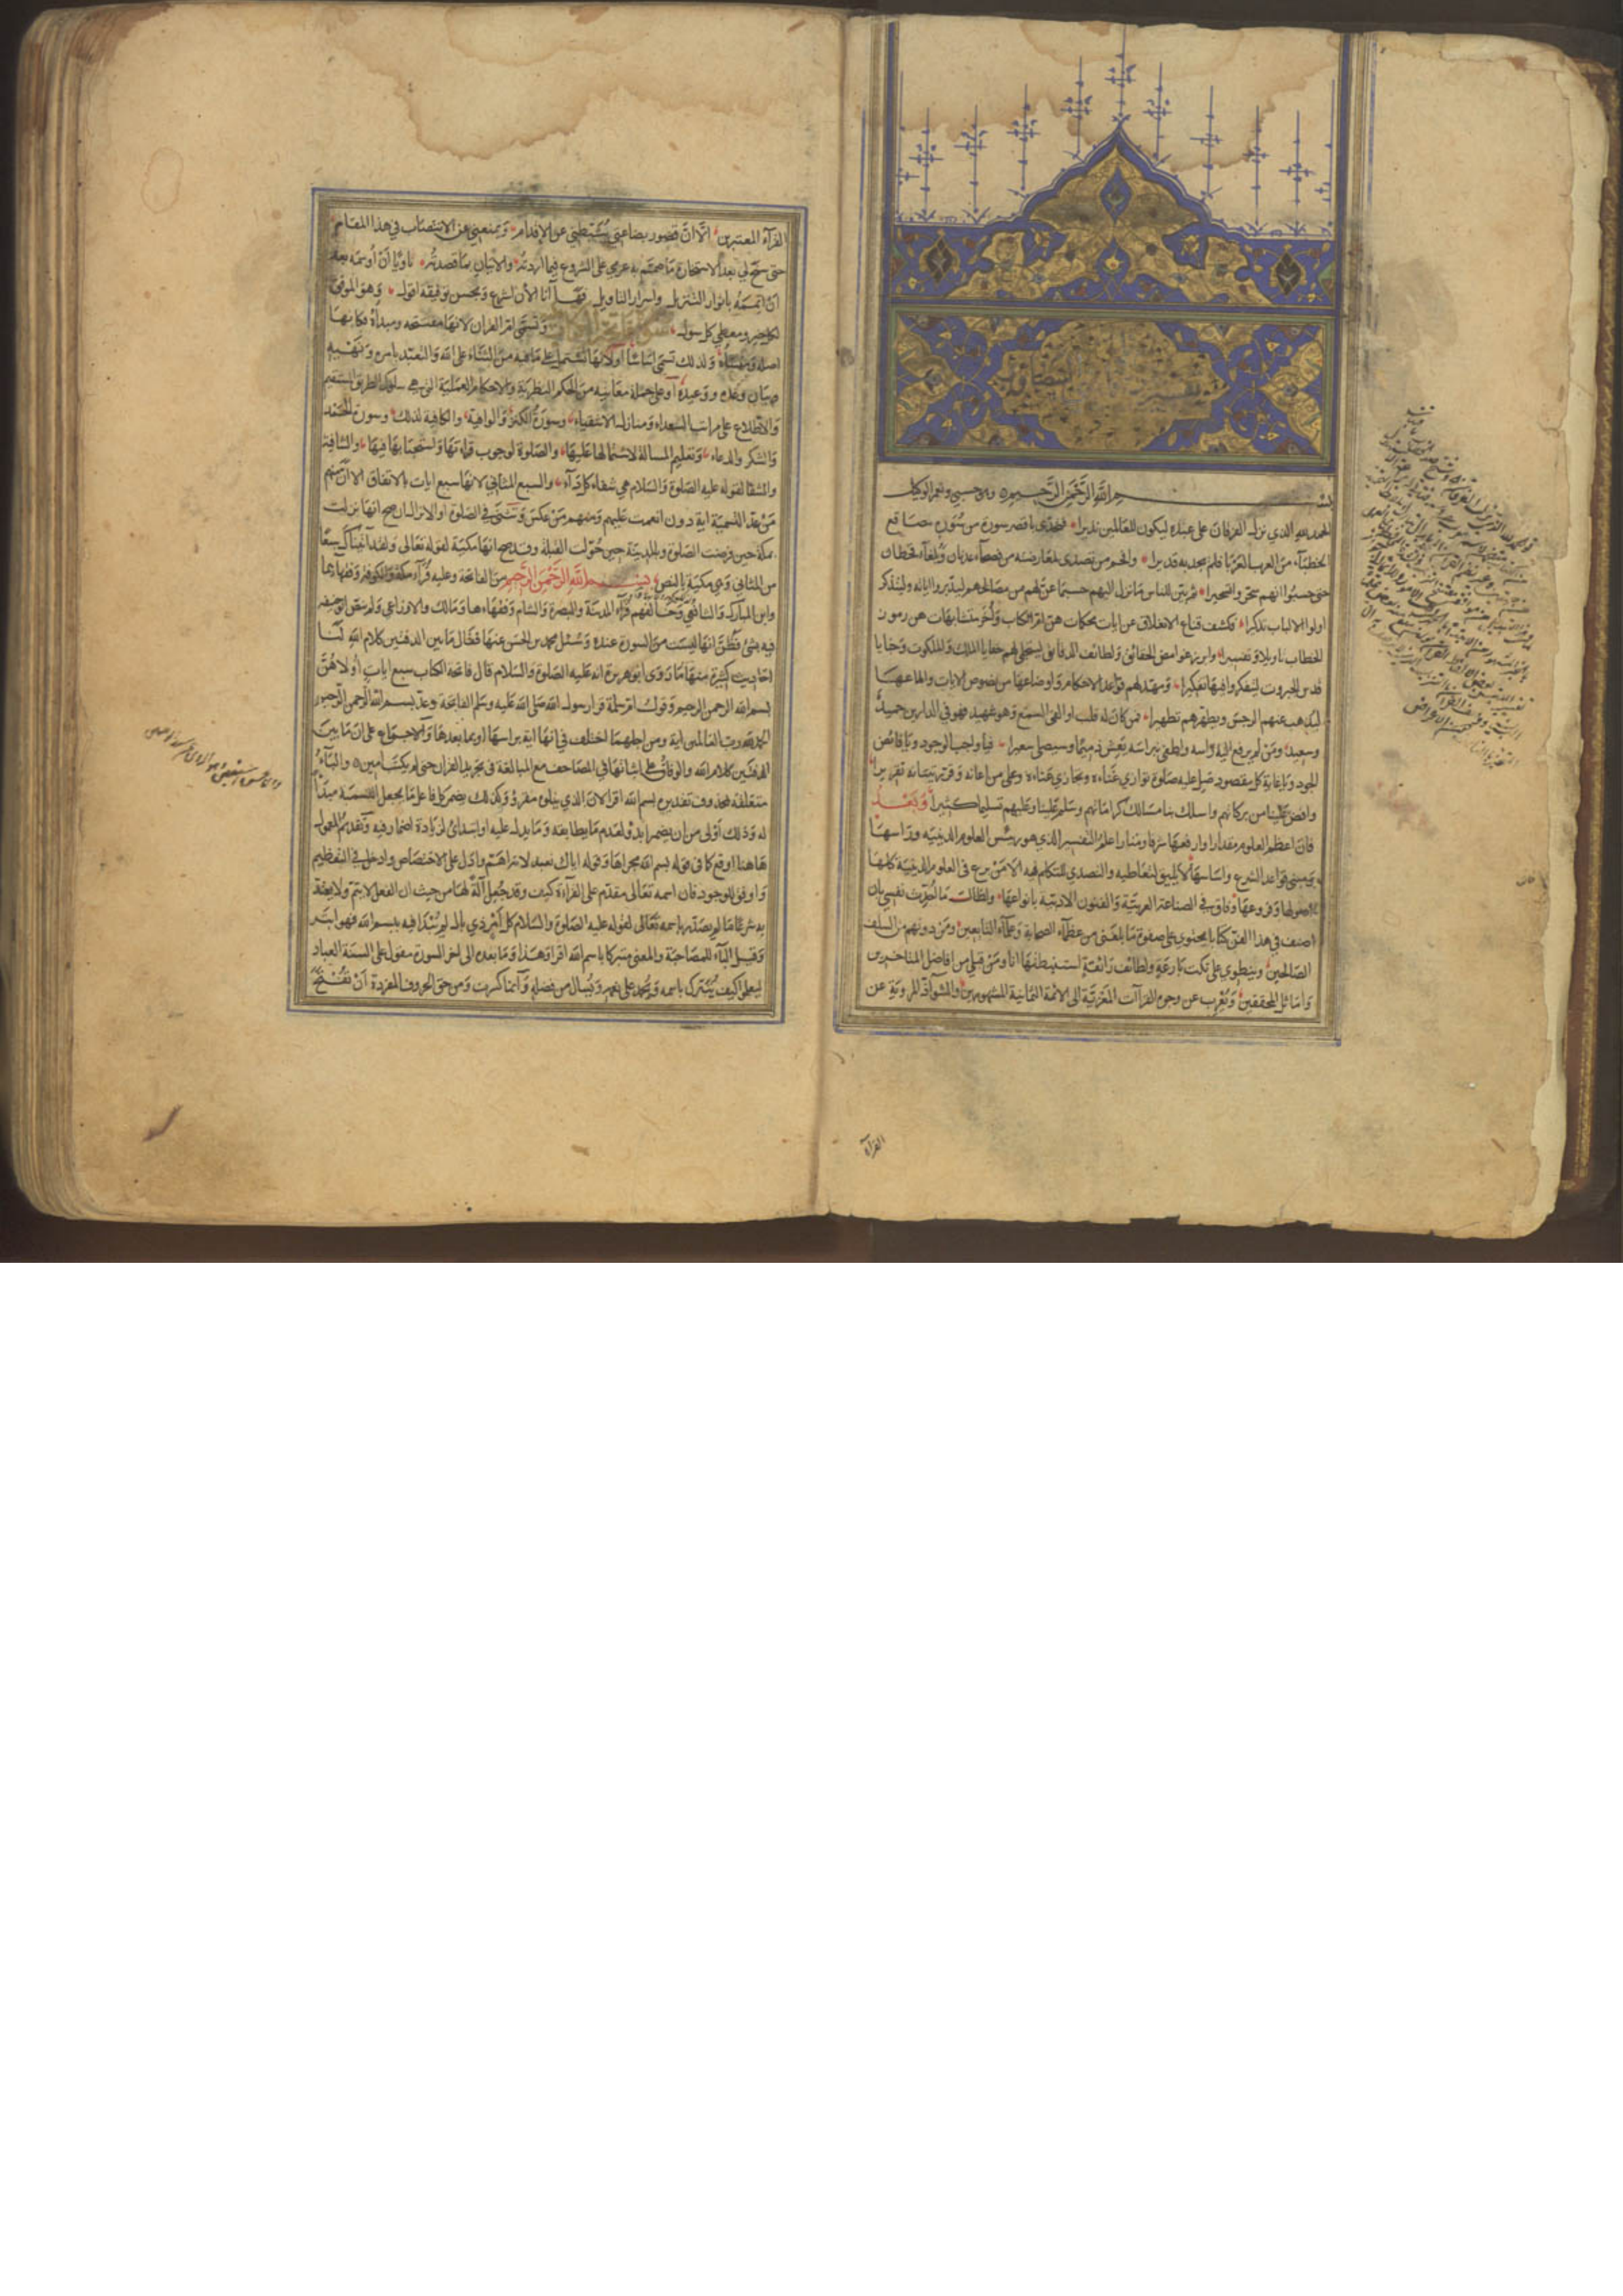 تفسير
البيضاوي
بسم الله الرحمن الرحيم وهو حسبي ونعم الوكيل
الحمد لله الذي نزل الفرقان على عبده ليكون للعالمين نذيرا فتحدى باقصر سورة من سوره مصاقع
الخطباء من العرب العرباء فلم يجد به قديرا وافحم من تصدى لمعارضته من فصحاء عدنان وبلغاء قحطان
حتى حسبوا انهم سحروا تسحيرا ثم بين للناس ما نزل اليهم حسبما عن لهم من مصالحهم ليدبروا اياته وليتذكر
اولوا الالباب تذكيرا فكشف قناع الانغلاق عن ايات محكمات هن ام الكتاب واخر متشابهات هن رموز
الخطاب تاويلا وتفسيرا وابرز غوامض الحقائق ولطائف الدقائق ليتجلى لهم خفايا الملك والملكوت وخبايا
قدس الجبروت ليتفكروا فيها تفكيرا ومهد لهم قواعد الاحكام واوضاعها من نصوص الايات والماعها
ليذهب عنهم الرجس ويطهرهم تطهيرا فمن كان له قلب او القى السمع وهو شهيد فهو في الدارين حميد
وسعيد ومن لم يرفع اليه راسه واطفئ نبراسه يعش ذميما وسيصلى سعيرا فيا واجب الوجود ويا فائض
الجود ويا غاية كل مقصود صل عليه صلوة توازي غناءه وتجازي عناءه وعلى من اعانه وقرر تبيانه تقريرا
وافض علينا من بركاتهم واسلك بنا مسالك كراماتهم وسلم علينا وعليهم تسليما كثيرا وبعد
فان اعظم العلوم مقدارا وارفعها شرفا ومنارا علم التفسير الذي هو رئيس العلوم الدينيه وراسها
ومبنى قواعد الشرع واساسها لا يليق لتعاطيه والتصدي للتكلم فيه الا من برع في العلوم الدينية كلها
اصولها وفروعها وفاق في الصناعة العربية والفنون الادبية بانواعها ولطالما احدث نفسي بان
اصنف في هذا الفن كتابا يحتوي على صفوة ما بلغني من عظماء الصحابة وعلماء التابعين ومن دونهم من السلف
الصالحين وينطوي على نكت بارعة ولطائف رائعة استنبطتها انا ومن قبلي من افاضل المتاخرين
واماثل المحققين ويعرب عن وجوه القراآت المعزية الى الائمة الثمانية المشهورين والشواذ المروية عن
القراء
القراء المعتبرين الا ان قصور بضاعتي يثبطني عن الاقدام ويمنعني عن الانتصاب في هذا المقام
حتى سنح لي بعد الاستخارة ما صمم به عزمي على الشروع فيما اردته والاتيان بما قصدته ناويا ان اوسمه بعد
ان اتممه بانوار التنزيل واسرار التاويل فها انا الان اشرع وبحسن توفيقه اقول وهو الموفق
لكل خير ومعطي كل سول سورة فاتحة الكتاب وتسمى ام القران لانها مفتتحه ومبداه فكانها
اصله ومنشاه ولذلك تسمى اساسا او لانها تشتمل على ما فيه من الثناء على الله والتعبد بامره ونهيه
وبيان وعده ووعيده او على جملة معانيه من الحكم النظرية والاحكام العملية التي هي سلوك الطريق المستقيم
والاطلاع على مراتب السعداء ومنازل الاشقياء وسورة الكنز والوافية والكافية لذلك وسورة الحمد
والشكر والدعاء وتعليم المسالة لاشتمالها عليها والصلوة لوجوب قراءتها واستحبابها فيها والشافية
والشفا لقوله عليه الصلوة والسلام هي شفاء كل داء والسبع المثاني لانها سبع ايات بالاتفاق الا ان منهم
من عد التسمية اية دون انعمت عليهم ومنهم من عكس وتثنى في الصلوة او الانزال ان صح انها نزلت
بمكة حين فرضت الصلوة وبالمدينة حين حولت القبلة وقد صح انها مكية لقوله تعالى ولقد آتيناك سبعا
من المثاني وهي مكية بالنص بسم الله الرحمن الرحيم من الفاتحة وعليه قراء مكة والكوفة وفقهاؤهما
وابن المبارك والشافعي وخالفهم قراء المدينة والبصرة والشام وفقهاءها ومالك والاوزاعي ولم ينص ابو حنيفه
فيه بشئ فظن انها ليست من السورة عنده وسئل محمد بن الحسن عنها فقال ما بين الدفتين كلام الله لنا
احاديث كثيرة منها ما روى ابو هريرة انه عليه الصلوة والسلام قال فاتحة الكتاب سبع ايات اولاهن
بسم الله الرحمن الرحيم وقول ام سلمة قرا رسول الله صلى الله عليه وسلم الفاتحة وعد بسم الله الرحمن الرحيم
الحمد لله رب العالمين اية ومن اجلهما اختلف في انها اية براسها او بما بعدها والاجماع على ان ما بين
الدفتين كلام الله والوفاق على اثباتها في المصاحف مع المبالغة في تجريد القران حتى لم يكتب امين والباء
متعلقة بمحذوف تقديره بسم الله اقرا لان الذي يتلوه مقروؤ وكذلك يضمر كل فاعل ما يجعل التسمية مبدا
له وذلك اولى من ان يضمر ابدؤ لعدم ما يطابقه وما يدل عليه او ابتدائي لزيادة اضمار فيه وتقديم المعمول
هاهنا اوقع كما في قوله بسم الله مجراها وقوله اياك نعبد لانه اهم وادل على الاختصاص وادخل في التعظيم
واوفق للوجود فان اسمه تعالى مقدم على القراءة كيف وقد جعل آلة لها من حيث ان الفعل لا يتم ولا يعتد
به شرعا ما لم يصدر باسمه تعالى لقوله عليه الصلوة والسلام كل امر ذي بال لم يبدا فيه ببسم الله فهو ابتر
وقيل الباء للمصاحبة والمعنى متبركا باسم الله اقرا وهذا وما بعده الى اخر السورة مقول على السنة العباد
ليعلموا كيف يتبرك باسمه ويحمد على نعمه ويسال من فضله وانما كسرت ومن حق الحروف المفردة ان تفتح